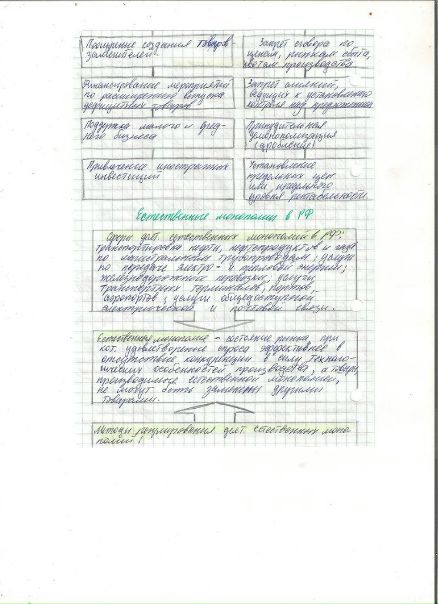 Поощрение создания товаров-
заменителей.
Запрет сговора по
ценам, рынкам сбыта,
квотам производства
Финансирование мероприятий
по расширению выпуска
дефицитных товаров
Запрет слияний,
ведущих к установлению
контроля над
Поддержка малого и сред-
него бизнеса
Принудительная
демонополизация
(дробление)
Привлечение иностранных
инвестиций
Установление
предельных цен
или предельного
уровня рентабельности
Естественные монополии в РФ
Сферы деят. естественных монополий в РФ:
транспортировка нефти, нефтепродуктов и газа
по магистральным трубопроводам; услуги
по передаче электро- и тепловой энергии;
железнодорожные перевозки; услуги
транспортных терминалов, портов,
аэропортов; услуги общедоступной
электрической и почтовой связи.
Естественная монополия - состояние рынка, при
кот. удовлетворение спроса эффективнее в
отсутствие конкуренции в силу техноло-
гических особенностей производства, а товары,
производимые естественной монополией,
не могут быть заменены другими
товарами.
Методы регулирования деят. естественных моно
полий: